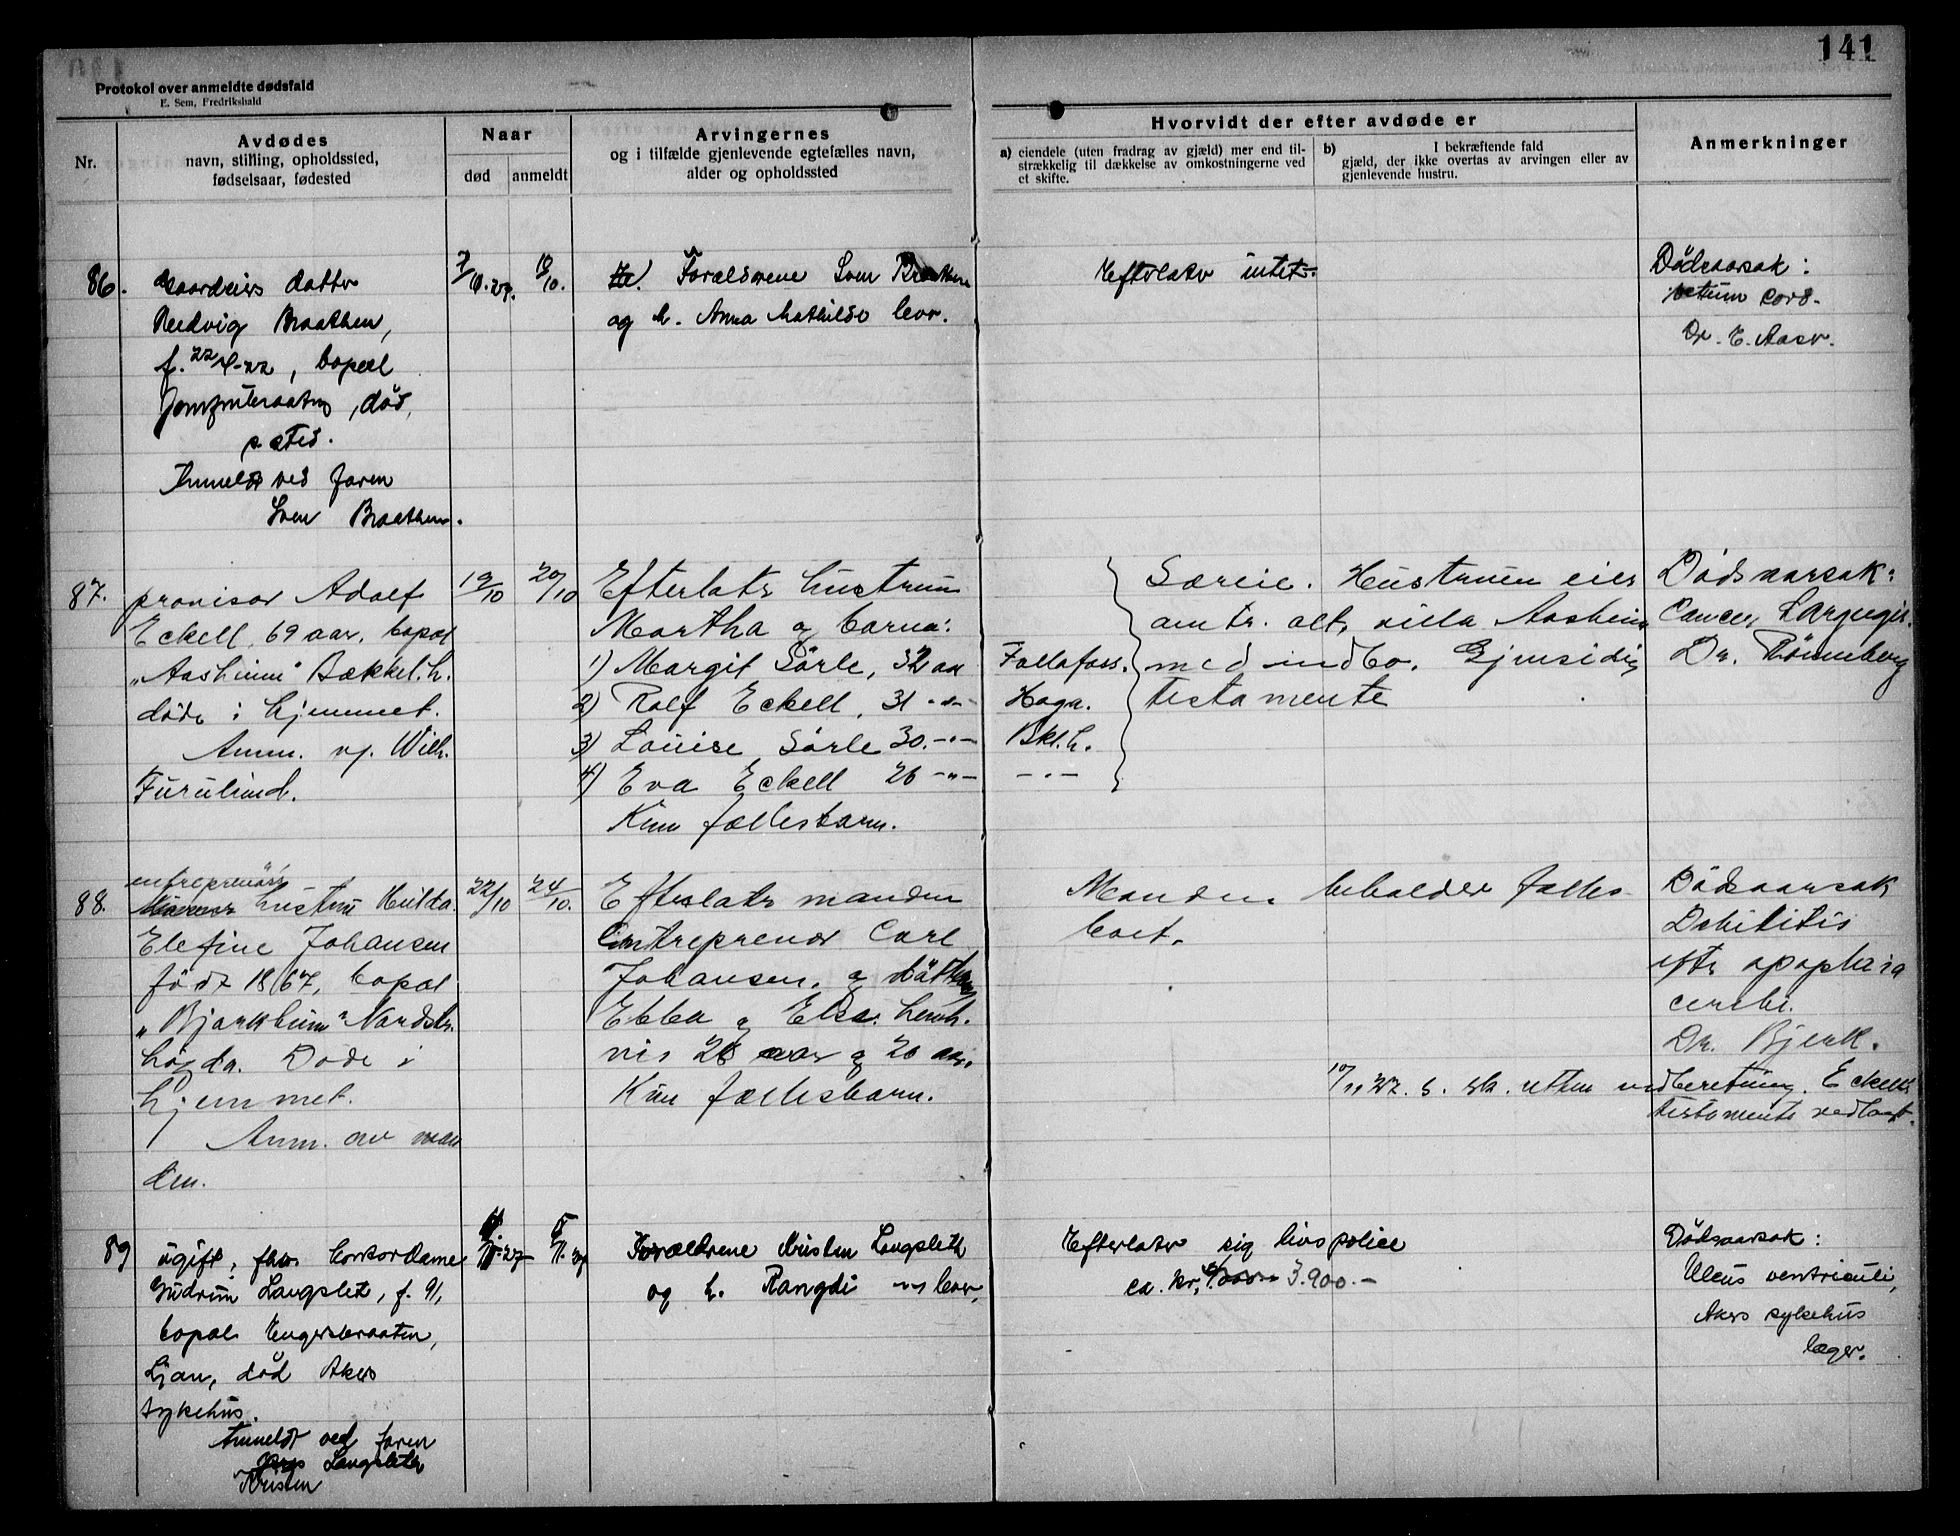 141
Protokol over anmeldte dødsfald
E. Sem, Fredrikshald
Nr.
Avdødes
navn, stilling, opholdssted,
fødselsaar, fødested
Naar
død
anmeldt
Arvingernes
og i tilfælde gjenlevende egtefælles navn,
alder og opholdssted
Hvorvidt der efter avdøde er
a) eiendele (uten fradrag av gjæld) mer end til-
strækkelig til dækkelse av omkostningerne ved
et skifte.
b) I bekræftende fald
gjæld, der ikke overtas av arvingen eller av
gjenlevende hustru.
Anmerkninger
86.
Gaardeiers datter
Hedvig Braathen,
f. 22/4-22, bopæl
død,
s. sted.
Anmeldt ved faren
Sven Braathen.
7/10.27.
10/10.
Forældrene Sven Braathen
og h. Anna Mathilde lever.
Efterlater intet.
Dödsaarsak:
cord.
Dr. E. Aaser.
87.
provisor Adolf
Eckell, 69 aar, bopæl
„Aasheim" Bækkel.h.
døde i hjemmet.
Anm. v. Wilh.
Furulund.
19/10
20/10
Efterlater hustruen
Martha og barna:
1) Margit Sörle, 32 aar
2) Rolf Eckell, 31 -"-
3) Louise Sörle 30. -"-
4) Eva Eckell 26 -"-
Kun fællesbarn.
Follafoss.
Haga.
Bkl.h.
-"-
Særeie. Hustruen eier
omtr. alt, villa Aasheim
med indbo. Gjensidig
testamente
Dödsaarsak:
Cancer Laryngis.
Dr. Rönneberg
88.
entreprenörs
hustru Hulda
Elefine Johansen
född 1867, bopæl
„Bjarkheim" Nordstr.
högda. Döde i
hjemmet.
Anm. av man
den.
22/10
24/10.
Efterlater manden
Entreprenör Carl
Johansen, og döttrene
Ebba og Elsa. henh.
vis 28 aar og 20 aar.
Kun fællesbarn.
Manden beholder fælles
boet.
Dödsaarsak
Debilitis
efter apoplexia
cerebri.
Dr. Bjerk.
10/11 27. s. sk. retten indberetning. Eckells
testamente vedlagt.
89
ugift, fhv. kontordame
Gudrun Langslet, f. 91,
bopæl Ingierbraaten,
Ljan, död Akers
sykehus.
Anmeldt ved faren
Langsleth
Kristen
Forældrene Kristen Langsleth
og h. Rangdi lever,
Efterlater sig livspolice
ca. kr. 3.900.-
Dödsaarsak:
Ulcus ventriculi,
Akers sykehus
læger.